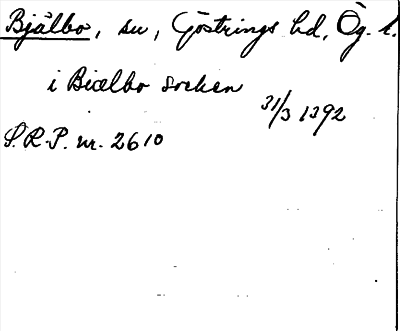 Bjälbo, sn, Göstrings hd, Ög. l.
i Biælbo sochen
31/3 1392
S.R.P. nr. 2610